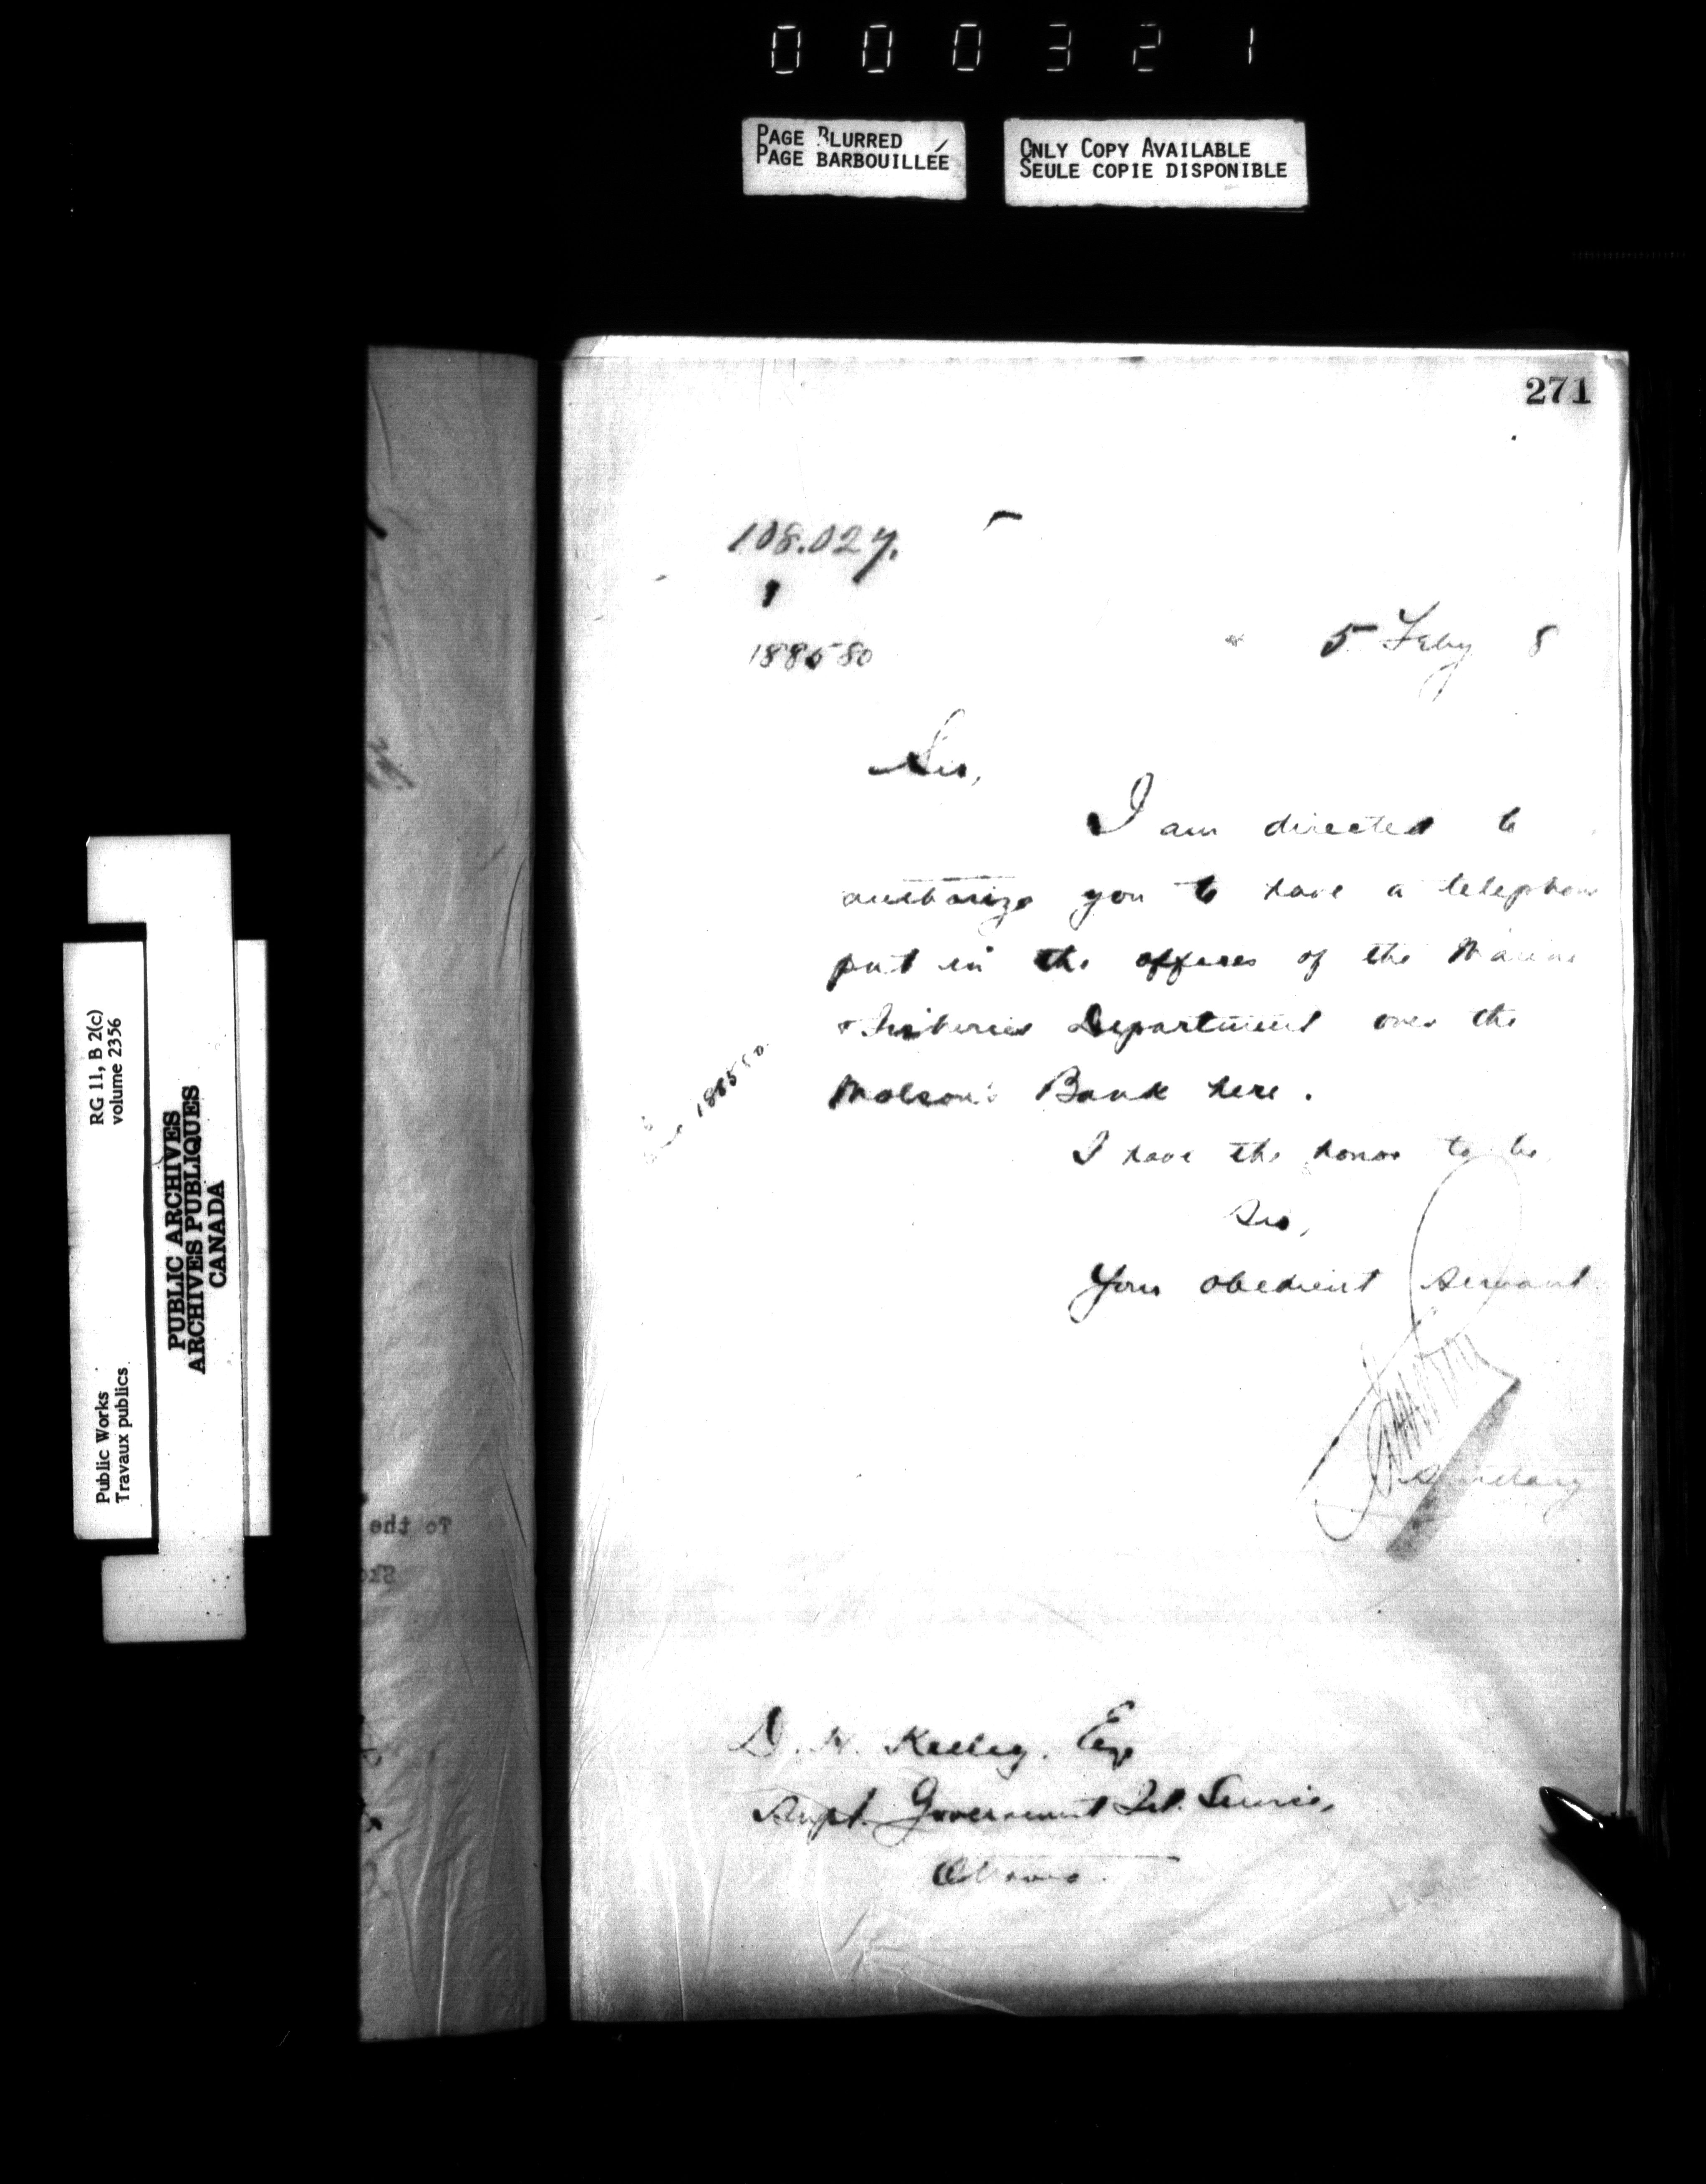 000321
PAGE BLURRED
PAGE BARBOUILLÉE
ONLY COPY AVAILABLE
SEULE COPIE DISPONIBLE
271
108.027.
188580
5 Feby 8
Sir,
I am directed to
authorize you to have a telephone
put in the offices of the Marine
& Fisheries Department over the
Molson's Bank here.
I have the honor to be
Sir,
Your obedient Servant
Secretary
188580
D. H. Keeley. Esq
Supt. Government Tel. Service,
Ottawa.
RG 11, B 2(c)
volume 2356
Public Works
Travaux publics
PUBLIC ARCHIVES
ARCHIVES PUBLIQUES
CANADA
To the